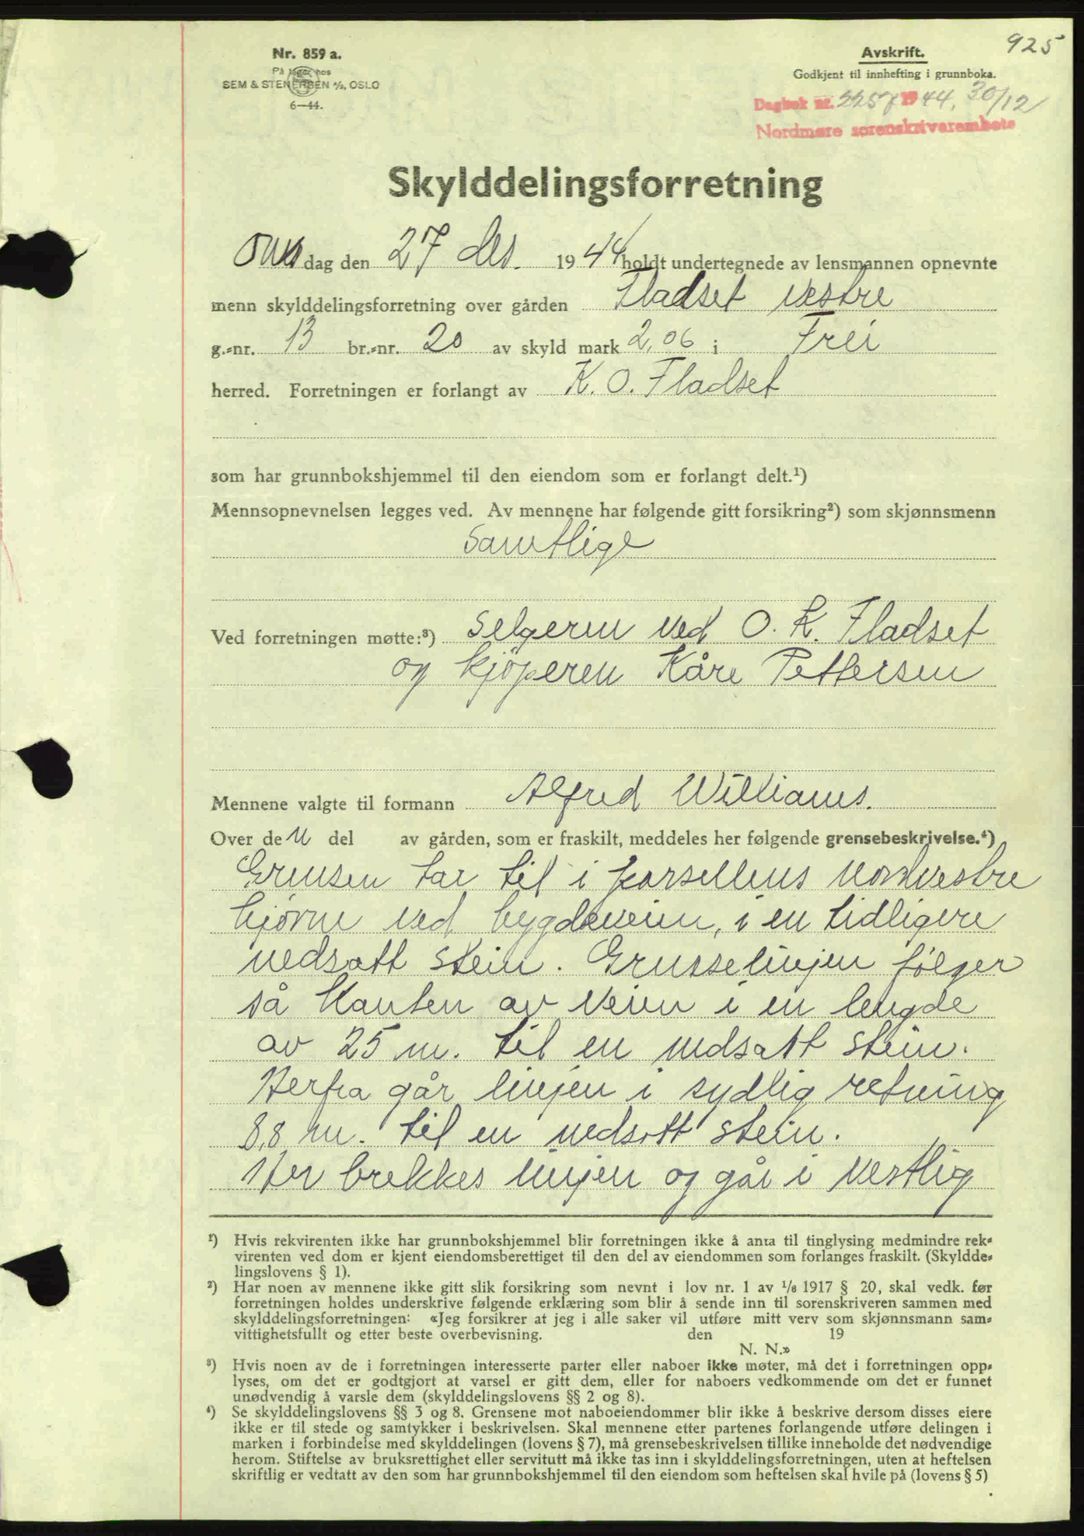 925
Nr. 859 a.
På lager hos
SEM & STENERSEN A/S, OSLO
6—44.
Avskrift.
Godkjent til innhefting i grunnboka.
Dagbok nr. 2257 1944, 30/12
Nordmøre sorenskriverembete
Skylddelingsforretning
Onsdag den 27 des. 1944 holdt undertegnede av lensmannen opnevnte
menn skylddelingsforretning over gården Fladset vestre
g.-nr. 13 br.-nr. 20 av skyld mark 2,06 i Frei
herred. Forretningen er forlangt av K. O. Fladset
som har grunnbokshjemmel til den eiendom som er forlangt delt.¹)
Mennsopnevnelsen legges ved. Av mennene har følgende gitt forsikring²) som skjønnsmenn
Samtlige
Ved forretningen møtte:³) Selgeren ved O. K. Fladset
og kjøperen Kåre Pettersen
Mennene valgte til formann Alfred Williams.
Over den del av gården, som er fraskilt, meddeles her følgende grensebeskrivelse.⁴)
Grensen tar til i parsellens nordvestre
hjørne ved bygdeveien, i en tidligere
nedsatt stein. Grenselinjen følger
så kanten av veien i en lengde
av 25 m. til en nedsatt stein.
Herfra går linjen i sydlig retning
8,8 m. til en nedsatt stein.
Her brekkes linjen og går i vestlig
¹) Hvis rekvirenten ikke har grunnbokshjemmel blir forretningen ikke å anta til tinglysing medmindre rek-
virenten ved dom er kjent eiendomsberettiget til den del av eiendommen som forlanges fraskilt. (Skyldde-
lingslovens § 1).
²) Har noen av mennene ikke gitt slik forsikring som nevnt i lov nr. 1 av 1/6 1917 § 20, skal vedk. før
forretningen holdes underskrive følgende erklæring som blir å sende inn til sorenskriveren sammen med
skylddelingsforretningen: «Jeg forsikrer at jeg i alle saker vil utføre mitt verv som skjønnsmann sam-
vittighetsfullt og etter beste overbevisning. den 19
N. N.»
³) Hvis noen av de i forretningen interesserte parter eller naboer ikke møter, må det i forretningen opp-
lyses, om det er godtgjort at varsel er gitt dem, eller for naboers vedkommende om det er funnet
unødvendig å varsle dem (skylddelingslovens §§ 2 og 8).
⁴) Se skylddelingslovens §§ 3 og 8. Grensene mot naboeiendommer blir ikke å beskrive dersom disses eiere
ikke er til stede og samtykker i beskrivelsen. Skal mennene etter partenes forlangende utføre delingen i
marken i forbindelse med skylddelingen (lovens § 7), må grensebeskrivelsen tillike inneholde det nødvendige
herom. Stiftelse av bruksrettighet eller servitutt må ikke tas inn i skylddelingsforretningen, uten at heftelsen
skriftlig er vedtatt av den som har grunnbokshjemmel til den eiendom som heftelsen skal hvile på (lovens § 5)